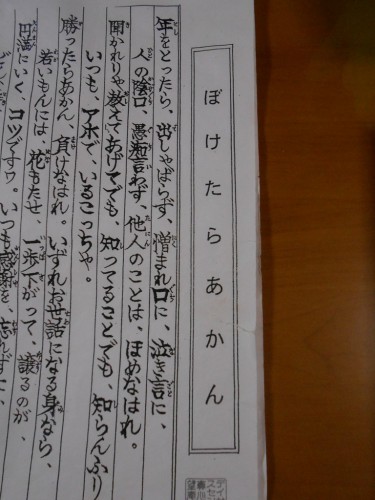 ぼけたらあかん
年をとったら、出しゃばらず、憎まれ口に、泣き言に、
人の陰口、愚痴言わず、他人のことは、ほめなはれ。
聞かれりゃ教えてあげてでも、知ってることでも、知らんふり
いつも、アホで、いるこっちゃ。
勝ったらあかん、負けなはれ。いずれお世話になる身なら、
若いもんには花もたせ、一歩下がって、譲るのが、
円満にいく、コツですワ。いつも感謝を、忘れずに、